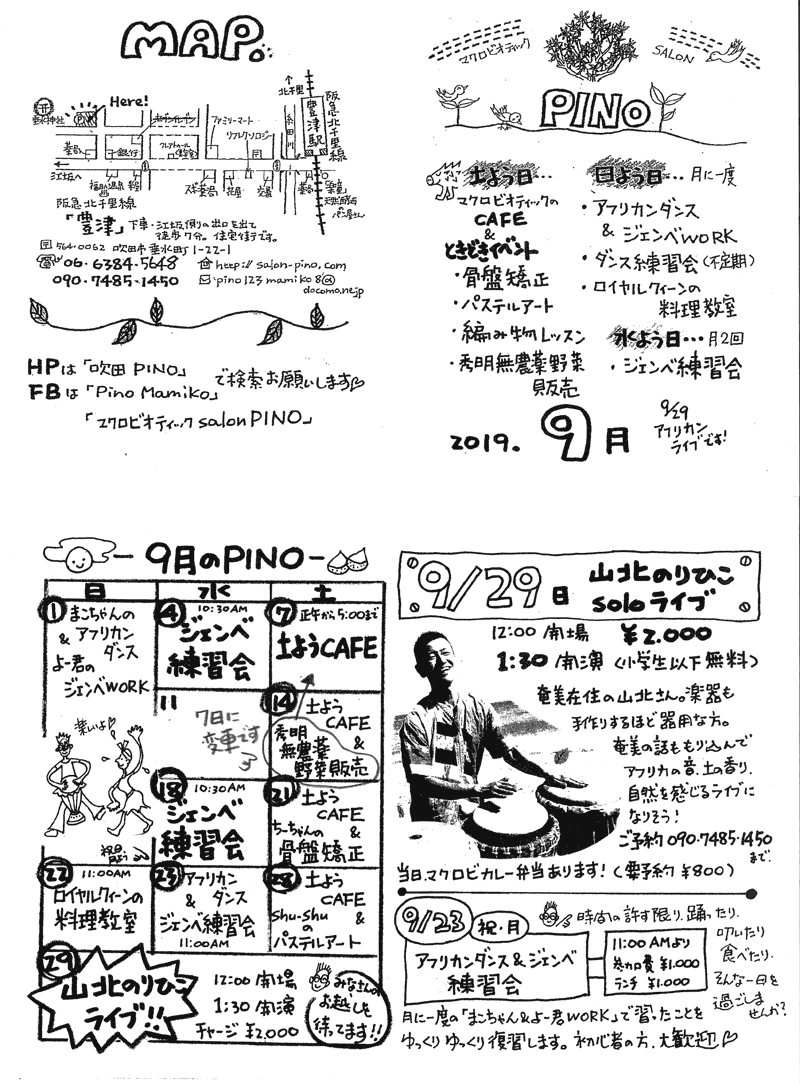 MAP.
Here!
PINO
セブンイレブン
ファミリーマート
リフレクソロジー
垂水神社
薬局
銀行
糸田川
↑
北千里
豊津駅
阪急北千里線
江坂へ
花屋
交番
パン屋さん
阪急北千里線
「豊津」下車・江坂側の出口を出て
徒歩7分。住宅街です。
〒564-0062 吹田市垂水町1-22-1
☎06-6384-5648
http://salon-pino.com
090-7485-1450
pino123mamiko8@
docomo.ne.jp
HPは「吹田PINO」
FBは「Pino Mamiko」
で検索お願いします♡
「マクロビオティックsalon PINO」
マクロビオティック
SALON
PINO
土よう日…
マクロビオティックの
CAFE
&
ときどきイベント
・骨盤矯正
・パステルアート
・編み物レッスン
・秀明無農薬野菜
販売
日よう日…月に一度
・アフリカンダンス
& ジェンベWORK
・ダンス練習会(不定期)
・ロイヤルクィーンの
料理教室
水よう日…月2回
・ジェンベ練習会
2019. 9月
9/29
アフリカン
ライブです!
－9月のPINO－
日 水 土
1 まこちゃんの
& アフリカン
ダンス
よー君の
ジェンベWORK
4 10:30AM
ジェンベ
練習会
7 正午から5:00まで
土ようCAFE
11
7日に
変更です
14 土よう
CAFE
&
秀明
無農薬
野菜販売
楽しいよ♡
祝日
月よう
18 10:30AM
ジェンベ
練習会
21 土よう
CAFE
&
ちーちゃんの
骨盤矯正
22 11:00AM
ロイヤルクィーンの
料理教室
23 アフリカン
& ダンス
ジェンベ練習会
11:00AM
28 土よう
CAFE
&
Shu-Shuの
パステルアート
29
山北のりひこ
ライブ!!
12:00 開場
1:30 開演
チャージ ¥2,000
みなさんの
お越しを
待ってます!!
9/29日 山北のりひこ
soloライブ
12:00 開場 ¥2,000
1:30 開演 (小学生以下無料)
奄美在住の山北さん。楽器も
手作りするほど器用な方。
奄美の話ももり込んで
アフリカの音、土の香り、
自然を感じるライブに
なりそう!
ご予約 090-7485-1450
まで。
当日、マクロビカレー弁当あります!(要予約 ¥800)
9/23 祝・月
アフリカンダンス&ジェンベ
練習会
11:00AMより
参加費 ¥1,000
ランチ ¥1,000
時間の許す限り、踊ったり、
叩いたり
食べたり、
そんな一日を
過ごしま
せんか?
月に一度の「まこちゃん&よー君WORK」で習ったことを
ゆっくりゆっくり復習します。初心者の方、大歓迎♡